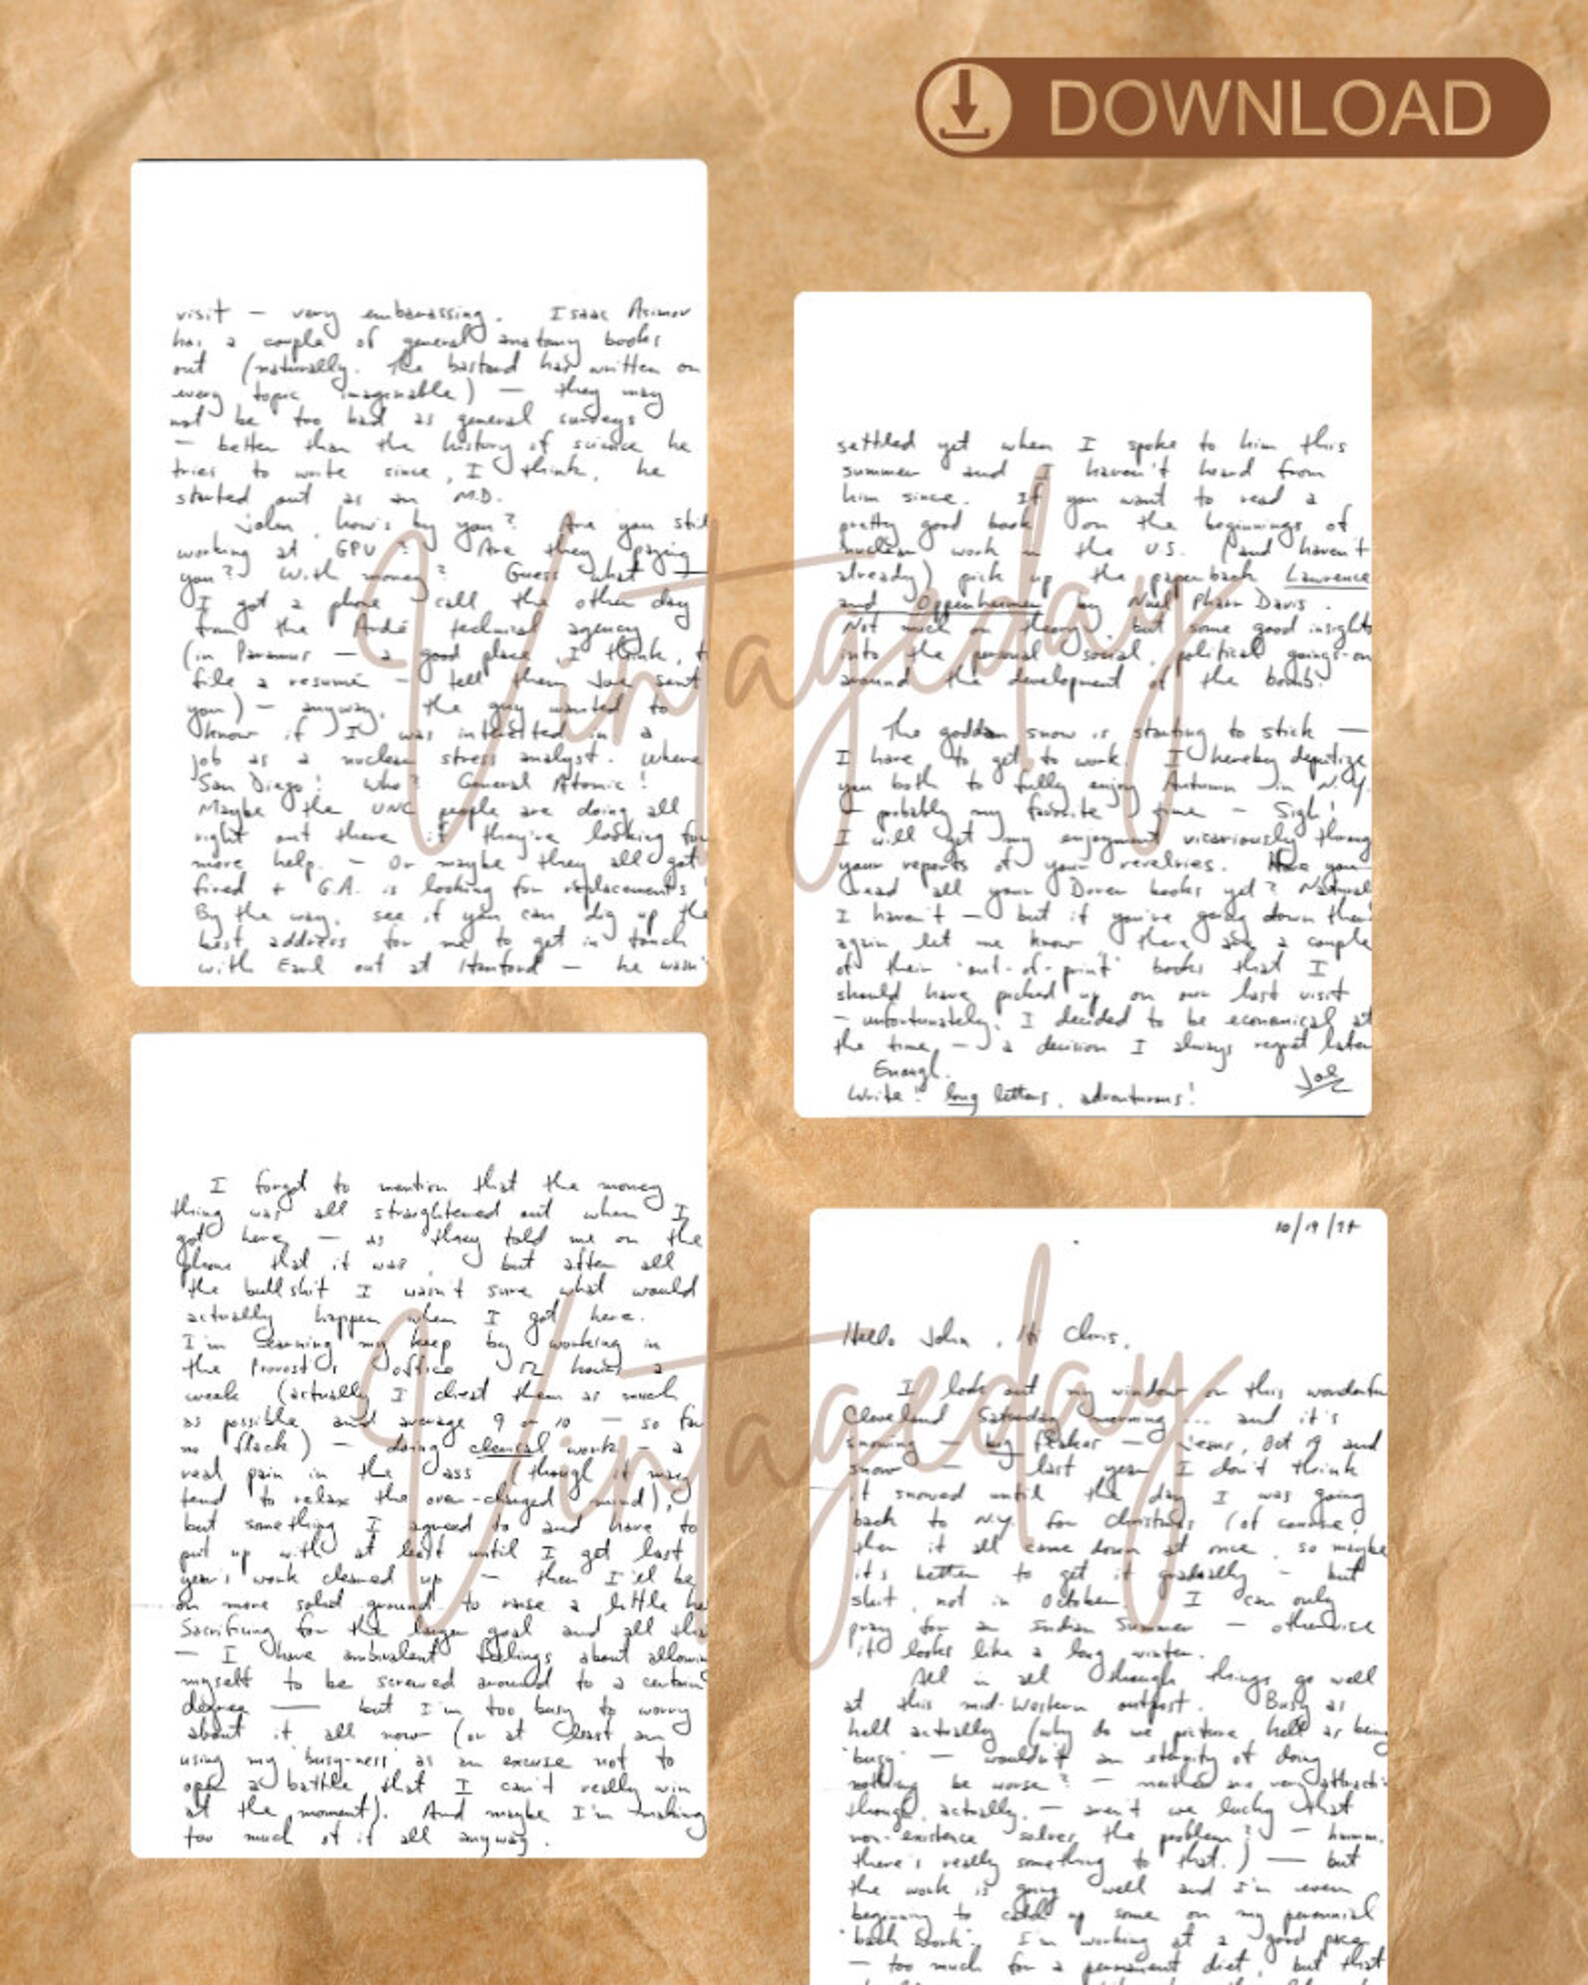 DOWNLOAD
visit — very embarassing. Isaac Asimov
has a couple of general anatomy books
out (naturally. The bastard has written on
every topic imaginable) — they may
not be too bad as general surveys
— better than the history of science he
tries to write since, I think, he
started out as an M.D.
John, how's by you? Are you stil
working at GPU? Are they paying
you? With money? Guess what —
I got a phone call the other day
from the Ardé technical agency
(in Paramus — a good place, I think, t
file a resumé — tell them Joe sent
you) — anyway, the guy wanted to
know if I was interested in a
job as a nuclear stress analyst. Where
San Diego! Who? General Atomic!
Maybe the UNC people are doing all
right out there if they're looking for
more help. — Or maybe they all got
fired + G.A. is looking for replacements!
By the way, see if you can dig up the
best address for me to get in touch
with Earl out at Hanford — he wasn'
settled yet when I spoke to him this
summer and I haven't heard from
him since. If you want to read a
pretty good book on the beginnings of
nuclear work in the U.S. (and haven't
already) pick up the paperback Lawrence
and Oppenheimer by Nuel Pharr Davis.
Not much on theory, but some good insights
into the personal social, political goings-on
around the development of the bomb.
The goddam snow is starting to stick —
I have to get to work. I hereby deputize
you both to fully enjoy Autumn in N.Y.
— probably my favorite time — Sigh!
I will get my enjoyment vicariously throug
your reports of your revelries. Have you
read all your Dover books yet? Natural
I haven't — but if you're going down ther
again, let me know there are a couple
of their "out-of-print" books that I
should have picked up on our last visit
— unfortunately, I decided to be economical at
the time, — a decision I always regret later
Enough.
Joe
Write! long letters, adventurous!
I forgot to mention that the money
thing was all straightened out when I
got here, — as they told me on the
phone that it was, but after all
the bullshit I wasn't sure what would
actually happen when I got here.
I'm earning my keep by working in
the Provost's office 12 hours a
week (actually I cheat them as much
as possible and average 9 or 10 — so far
no flack) — doing clerical work — a
real pain in the ass (though it may
tend to relax the over-charged mind),
but something I agreed to and have to
put up with at least until I get last
year's work cleaned up — then I'll be
on more solid ground to raise a little he
Sacrificing for the larger goal and all tha
— I have ambivalent feelings about allowin
myself to be screwed around to a certain
degree — but I'm too busy to worry
about it all now (or at least am
using my "busy-ness" as an excuse not to
open a battle that I can't really win
at the moment). And maybe I'm making
too much of it all anyway.
10/19/74
Hello John, Hi Chris,
I look out my window on this wonderfu
Cleveland Saturday morning ... and it's
snowing — big flakes — Jesus, Oct 19 and
snow — last year I don't think
it snowed until the day I was going
back to N.Y. for Christmas (of course,
then it all came down at once, so maybe
it's better to get it gradually — but
shit, not in October. I can only
pray for an Indian Summer — otherwise
it looks like a long winter.
All in all though things go well
at this mid-Western outpost. Busy as
hell actually (why do we picture hell as being
"busy" — wouldn't an eternity of doing
nothing be worse? — neither are very attracti
though, actually, — aren't we lucky that
non-existence solves the problem? — hmmm,
there's really something to that.) — but
the work is going well and I'm even
beginning to catch up some on my perennial
"back work". I'm working at a good pace
— too much for a permanent diet, but that
Vintageday
Vintageday